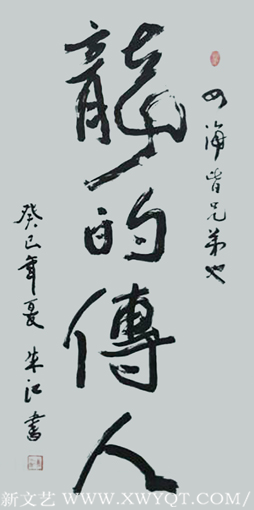 四海皆兄弟也
龍的傳人
癸巳年夏 朱江書
新文艺 WWW.XWYQT.COM